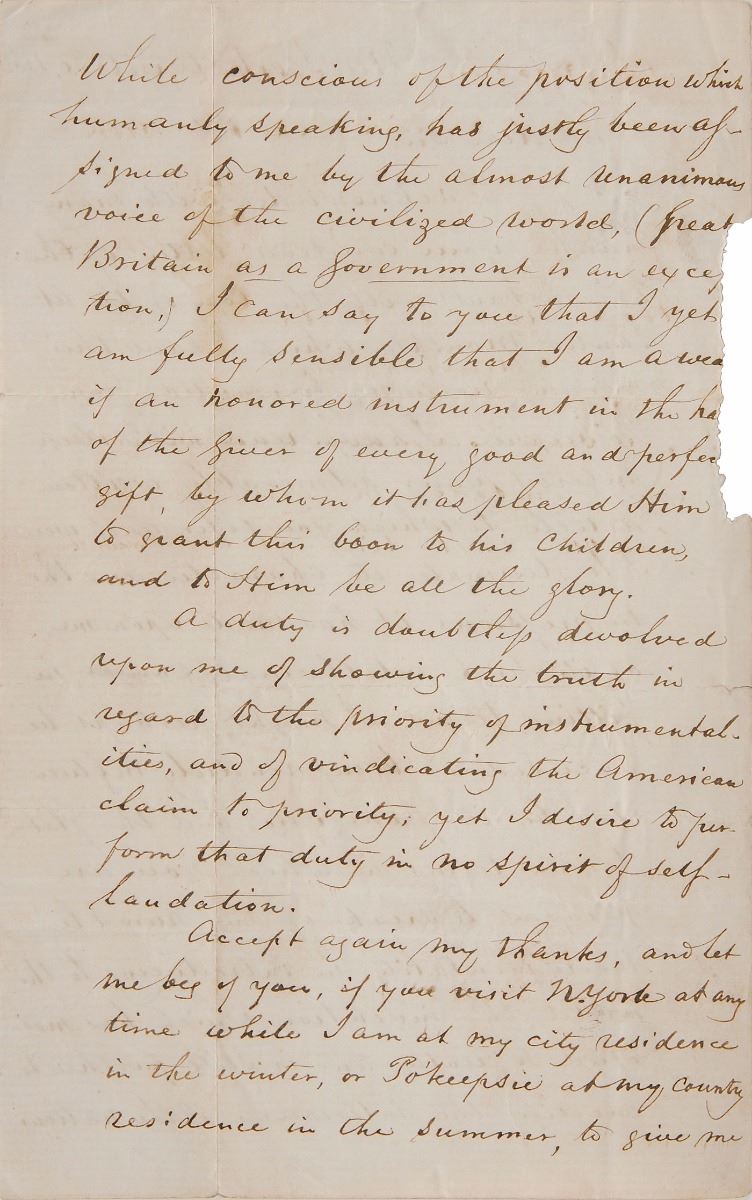 While conscious of the position which
humanly speaking, has justly been as-
signed to me by the almost unanimous
voice of the civilized world, (Great
Britain as a government is an excep
tion,) I can say to you that I yet
am fully sensible that I am a wea
if an honored instrument in the ha
of the Giver of every good and perfec
gift, by whom it has pleased Him
to grant this boon to his children,
and to Him be all the glory.
A duty is doubtless devolved
upon me of showing the truth in
regard to the priority of instrumental-
ities, and of vindicating the American
claim to priority; yet I desire to per-
form that duty in no spirit of self-
laudation.
Accept again my thanks, and let
me beg of you, if you visit N. York at any
time while I am at my city residence
in the winter, or Po'keepsie at my country
residence in the summer, to give me